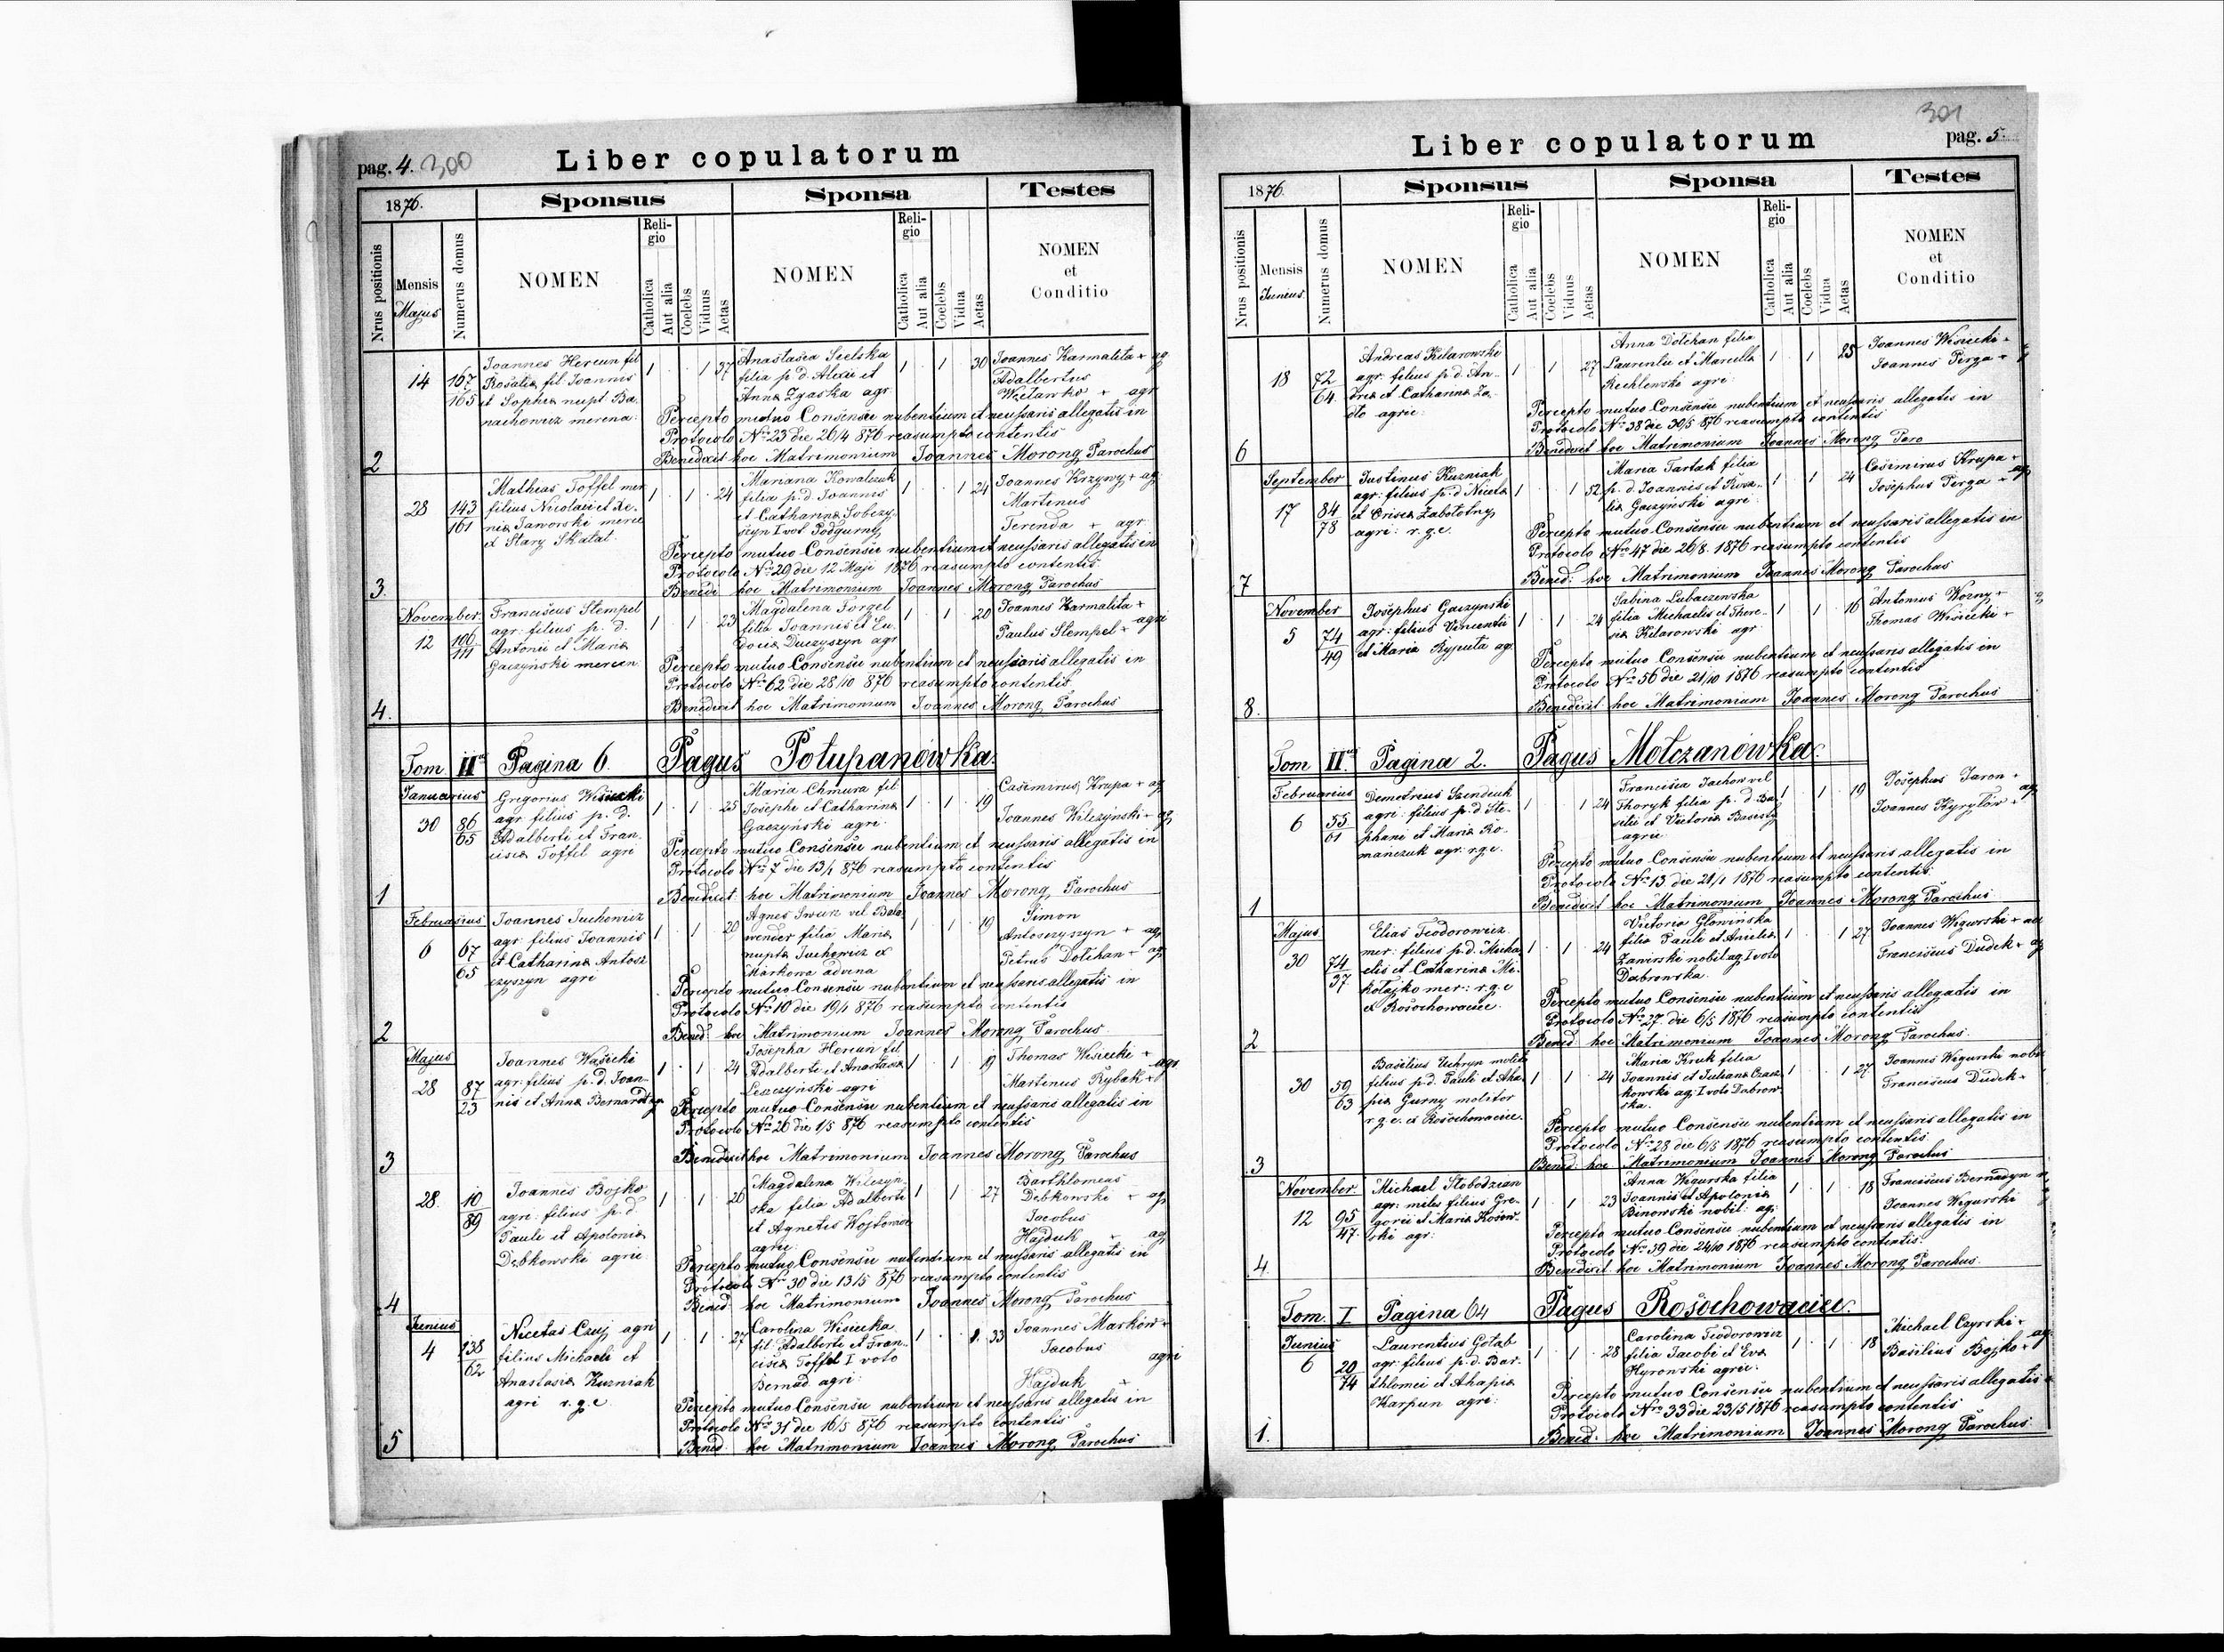 pag. 4. 300
Liber copulatorum
1876.
Sponsus
Sponsa
Testes
Nrus positionis
Mensis
Majus
Numerus domus
NOMEN
Religio
Catholica
Aut alia
Coelebs
Viduus
Aetas
NOMEN
Religio
Catholica
Aut alia
Coelebs
Vidua
Aetas
NOMEN
et
Conditio
2
14 167/165
Joannes Hercun fil
Rosaliæ fil Joannis
et Sophiæ nupt Ba
nachowicz merena
1 1 37
Anastasia Sielska
filia p. d. Alexii et
Annæ Zgaska agr
1 1 30
Joannes Karmalita + ag
Adalbertus
+ agr
Percepto mutuo Consensu nubentium et neussaris allegatis in
Protocolo Nro 23 die 26/4 876 reasumpto contentis
Benedixit hoc Matrimonium Joannes Morong Parochus
3
28 143/161
Matheas Toffel mer
filius Nicolai et Xe-
niæ Jaworski merce
ex Stary Skałat
1 1 24
Mariana Kowalczuk
filia p. d. Joannis
et Catharinæ Sobczy-
szyn I vot Podgurny
1 1 24
Joannes Krzywy + ag
Martinus
Terenda + agr
Percepto mutuo Consensu nubentium et neussaris allegatis in
Protocolo Nro 29 die 12 Maji 1876 reasumpto contentis
Benedi hoc Matrimonium Joannes Morong Parochus
4.
November
12 106/111
Franciscus Stempel
agr. filius p. d.
Antonii et Mariæ
Gaczyński mercen
1 1 23
Magdalena Forgel
filia Joannis et Eu
dociæ Duczyszyn agr
1 1 20
Joannes Karmalita +
Paulus Stempel + agri
Percepto mutuo Consensu nubentium et neussaris allegatis in
Protocolo Nro 62 die 28/10 876 reasumpto contentis
Benedixit hoc Matrimonium Joannes Morong Parochus
Tom. II Pagina 6. Pagus Połupanówka.
1
Januarius
30 86/65
Gregorius Wisiecki
agr filius p. d.
Adalberti et Fran-
ciscæ Toffel agri
1 1 25
Maria Chmura fil
Josephi et Catharinæ
Gaczyński agri
1 1 19
Casimirus Krupa + ag
Joannes Wilczyński + ag
Percepto mutuo Consensu nubentium et neussaris allegatis in
Protocolo Nro 7 die 13/1 876 reasumpto contentis
Benedixit hoc Matrimonium Joannes Morong Parochus
2
Februarius
6 67/65
Joannes Juchewicz
agr filius Joannis
et Catharinæ Antosz
czyszyn agri
1 1 20
Agnes vel Bała
wender filia Mariæ
nuptæ Juchewicz ex
Markowa advena
1 1 19
Simon
Antoszyszyn + ag
Petrus Dołchan + ag
Percepto mutuo Consensu nubentium et neussaris allegatis in
Protocolo Nro 10 die 19/1 876 reasumpto contentis
Bened hoc Matrimonium Joannes Morong Parochus
3
Majus
28 87/23
Joannes Wasiecki
agr: filius p. d. Joan-
nis et Annæ Bernard
1 1 24
Josepha Hercun fil
Adalberti et Anastasiæ
Leszczyński agri
1 1 19
Thomas Wisiecki + agr
Martinus Rybak +
Percepto mutuo Consensu nubentium et neussaris allegatis in
Protocolo Nro 26 die 1/5 876 reasumpto contentis
Benedixit hoc Matrimonium Joannes Morong Parochus
4
28 10/89
Joannes Bojko
agri: filius p. d.
Pauli et Apoloniæ
Debkowski agric
1 1 26
Magdalena Wilczyn-
ska filia Adalberti
et Agnetis Wojtowicz
agric:
1 1 27
Barthlomeus
Debkowski + ag
Jacobus
Hajduk ag
Percepto mutuo Consensu nubentium et neussaris allegatis in
Protocolo Nro 30 die 13/5 876 reasumpto contentis
Bened hoc Matrimonium Joannes Morong Parochus
5
Junius
4 138/62
Nicetas Czuj agri
filius Michaeli et
Anastasiæ Kuzniak
agri r. g. c
1 1 27
Carolina Wisiecka
fil. Adalberti et Fran-
ciscæ Toffel I voto
Bernad agri
1 1 33
Joannes Markow +
Jacobus agri
Hajduk +
Percepto mutuo Consensu nubentium et neussaris allegatis in
Protocolo Nro 31 die 16/5 876 reasumpto contentis
Bened hoc Matrimonium Joannes Morong Parochus
301
Liber copulatorum
pag. 5.
1876.
Sponsus
Sponsa
Testes
Nrus positionis
Mensis
Junius
Numerus domus
NOMEN
Religio
Catholica
Aut alia
Coelebs
Viduus
Aetas
NOMEN
Religio
Catholica
Aut alia
Coelebs
Vidua
Aetas
NOMEN
et
Conditio
6
18 72/64
Andreas Kilarowski
agr. filius p. d. An-
dreæ et Catharinæ Za-
oło agric:
1 1 27
Anna Dołchan filia
Laurentii et Marcellæ
Rechlewski agri
1 1 25
Joannes Wisiecki +
Joannes Perga +
Percepto mutuo Consensu nubentium et neussaris allegatis in
Protocolo Nro 38 die 30/5 876 reasumpto contentis
Benedixit hoc Matrimonium Joannes Morong Paro
7
September
17 84/78
Justinus Kuzniak
agr: filius p. d. Nicetæ
et Zabołotny
agri: r. g. c.
1 1 52
Maria Tartak filia
p. d. Joannis et Rosa-
liæ Gaczyński agri
1 1 24
Casimirus Krupa +
Josephus Perga + ag
Percepto mutuo Consensu nubentium et neussaris allegatis in
Protocolo Nro 47 die 26/8. 1876 reasumpto contentis
Bened: hoc Matrimonium Joannes Morong Parochus
8.
November
5 74/49
Josephus Gaczynski
agr: filius Vincentii
et Mariæ Ryputa ag
1 1 24
Sabina Lubaczewska
filia Michaelis et Theo-
siæ Kilarowski agr
1 1 16
Antonius Wozny +
Thomas Wisiecki +
Percepto mutuo Consensu nubentium et neussaris allegatis in
Protocolo Nro 56 die 21/10 1876 reasumpto contentis
Benedixit hoc Matrimonium Joannes Morong Parochus
Tom. II. Pagina 2. Pagus Mołczanówka.
1
Februarius
6 55/61
Demetrius Szendiuk
agri: filius p. d. Ste-
phani et Mariæ Ro-
mańczuk agr: r. g. c.
1 1 24
Francisca Jachow vel
Thoryk filia p. d. Ba
silii et Victoriæ Basisty
agric
1 1 19
Josephus Jaron +
Joannes Kyryłow + ag
Percepto mutuo Consensu nubentium et neussaris allegatis in
Protocolo Nro 13. die 21/1 1876 reasumpto contentis
Benedixit hoc Matrimonium Joannes Morong Parochus
2
Majus
30 74/37
Elias Teodorowicz
mer: filius p. d. Micha
elis et Catharinæ Mi-
kołajko mer: r. g. c
ex Rosochowaciec.
1 1 24
Victoria Głowińska
filia Pauli et Anielæ
Zanirski nobil ag I voto
Dabrowska.
1 1 27
Joannes Wigurski + nob
Franciscus Dudek + ag
Percepto mutuo Consensu nubentium et neussaris allegatis in
Protocolo Nro 27. die 6/5 1876 reasumpto contentis
Bened hoc Matrimonium Joannes Morong Parochus.
3
30 59/63
Basilius Uchryn molit
filius p. d. Pauli et Aha-
piæ Gurny molitor
r. g. c. ex Rosochowaciec.
1 1 24
Maria Kruk filia
Joannis et Julianæ Czacz-
kowski ag: I voto Dabrow-
ska.
1 1 27
Joannes Wigurski nobi
Franciscus Dudek +
Percepto mutuo Consensu nubentium et neussaris allegatis in
Protocolo Nro 28 die 6/5 1876 reasumpto contentis
Bened hoc Matrimonium Joannes Morong Parochus
4
November
12 95/47.
Michael Słobodzian
agr: miles filius Gre-
gorii et Mariæ Kosow-
ski agr:
1 1 23
Anna Wigurska filia
Joannis et Apoloniæ
Binowski nobil: ag:
1 1 18
Franciscus Bernadyn
Joannes Wigurski
Percepto mutuo Consensu nubentium et neussaris allegatis in
Protocolo Nro 59 die 24/10 1876 reasumpto contentis.
Benedixit hoc Matrimonium Joannes Morong Parochus.
Tom. I Pagina 64 Pagus Rosochowaciec.
1.
Junius
6 20/74
Laurentius Gołab
agr: filius p. d. Bar-
thlomei et Ahapiæ
Karpun agri:
1 1 28
Carolina Teodorowicz
filia Jacobi et Evæ
Hyrowski agric:
1 1 18
Michael Czyrski +
Basilius Bojko + ag
Percepto mutuo Consensu nubentium et neussaris allegatis
Protocolo Nro 33 die 23/5 1876 reasumpto contentis
Bened: hoc Matrimonium Joannes Morong Parochus.